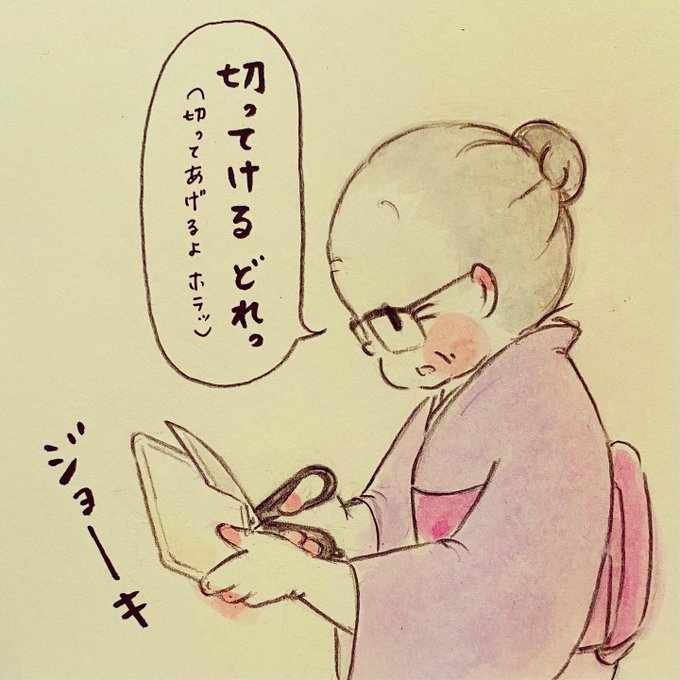 切ってける どれっ
(切ってあげるよ ホラッ)
ジョーキ